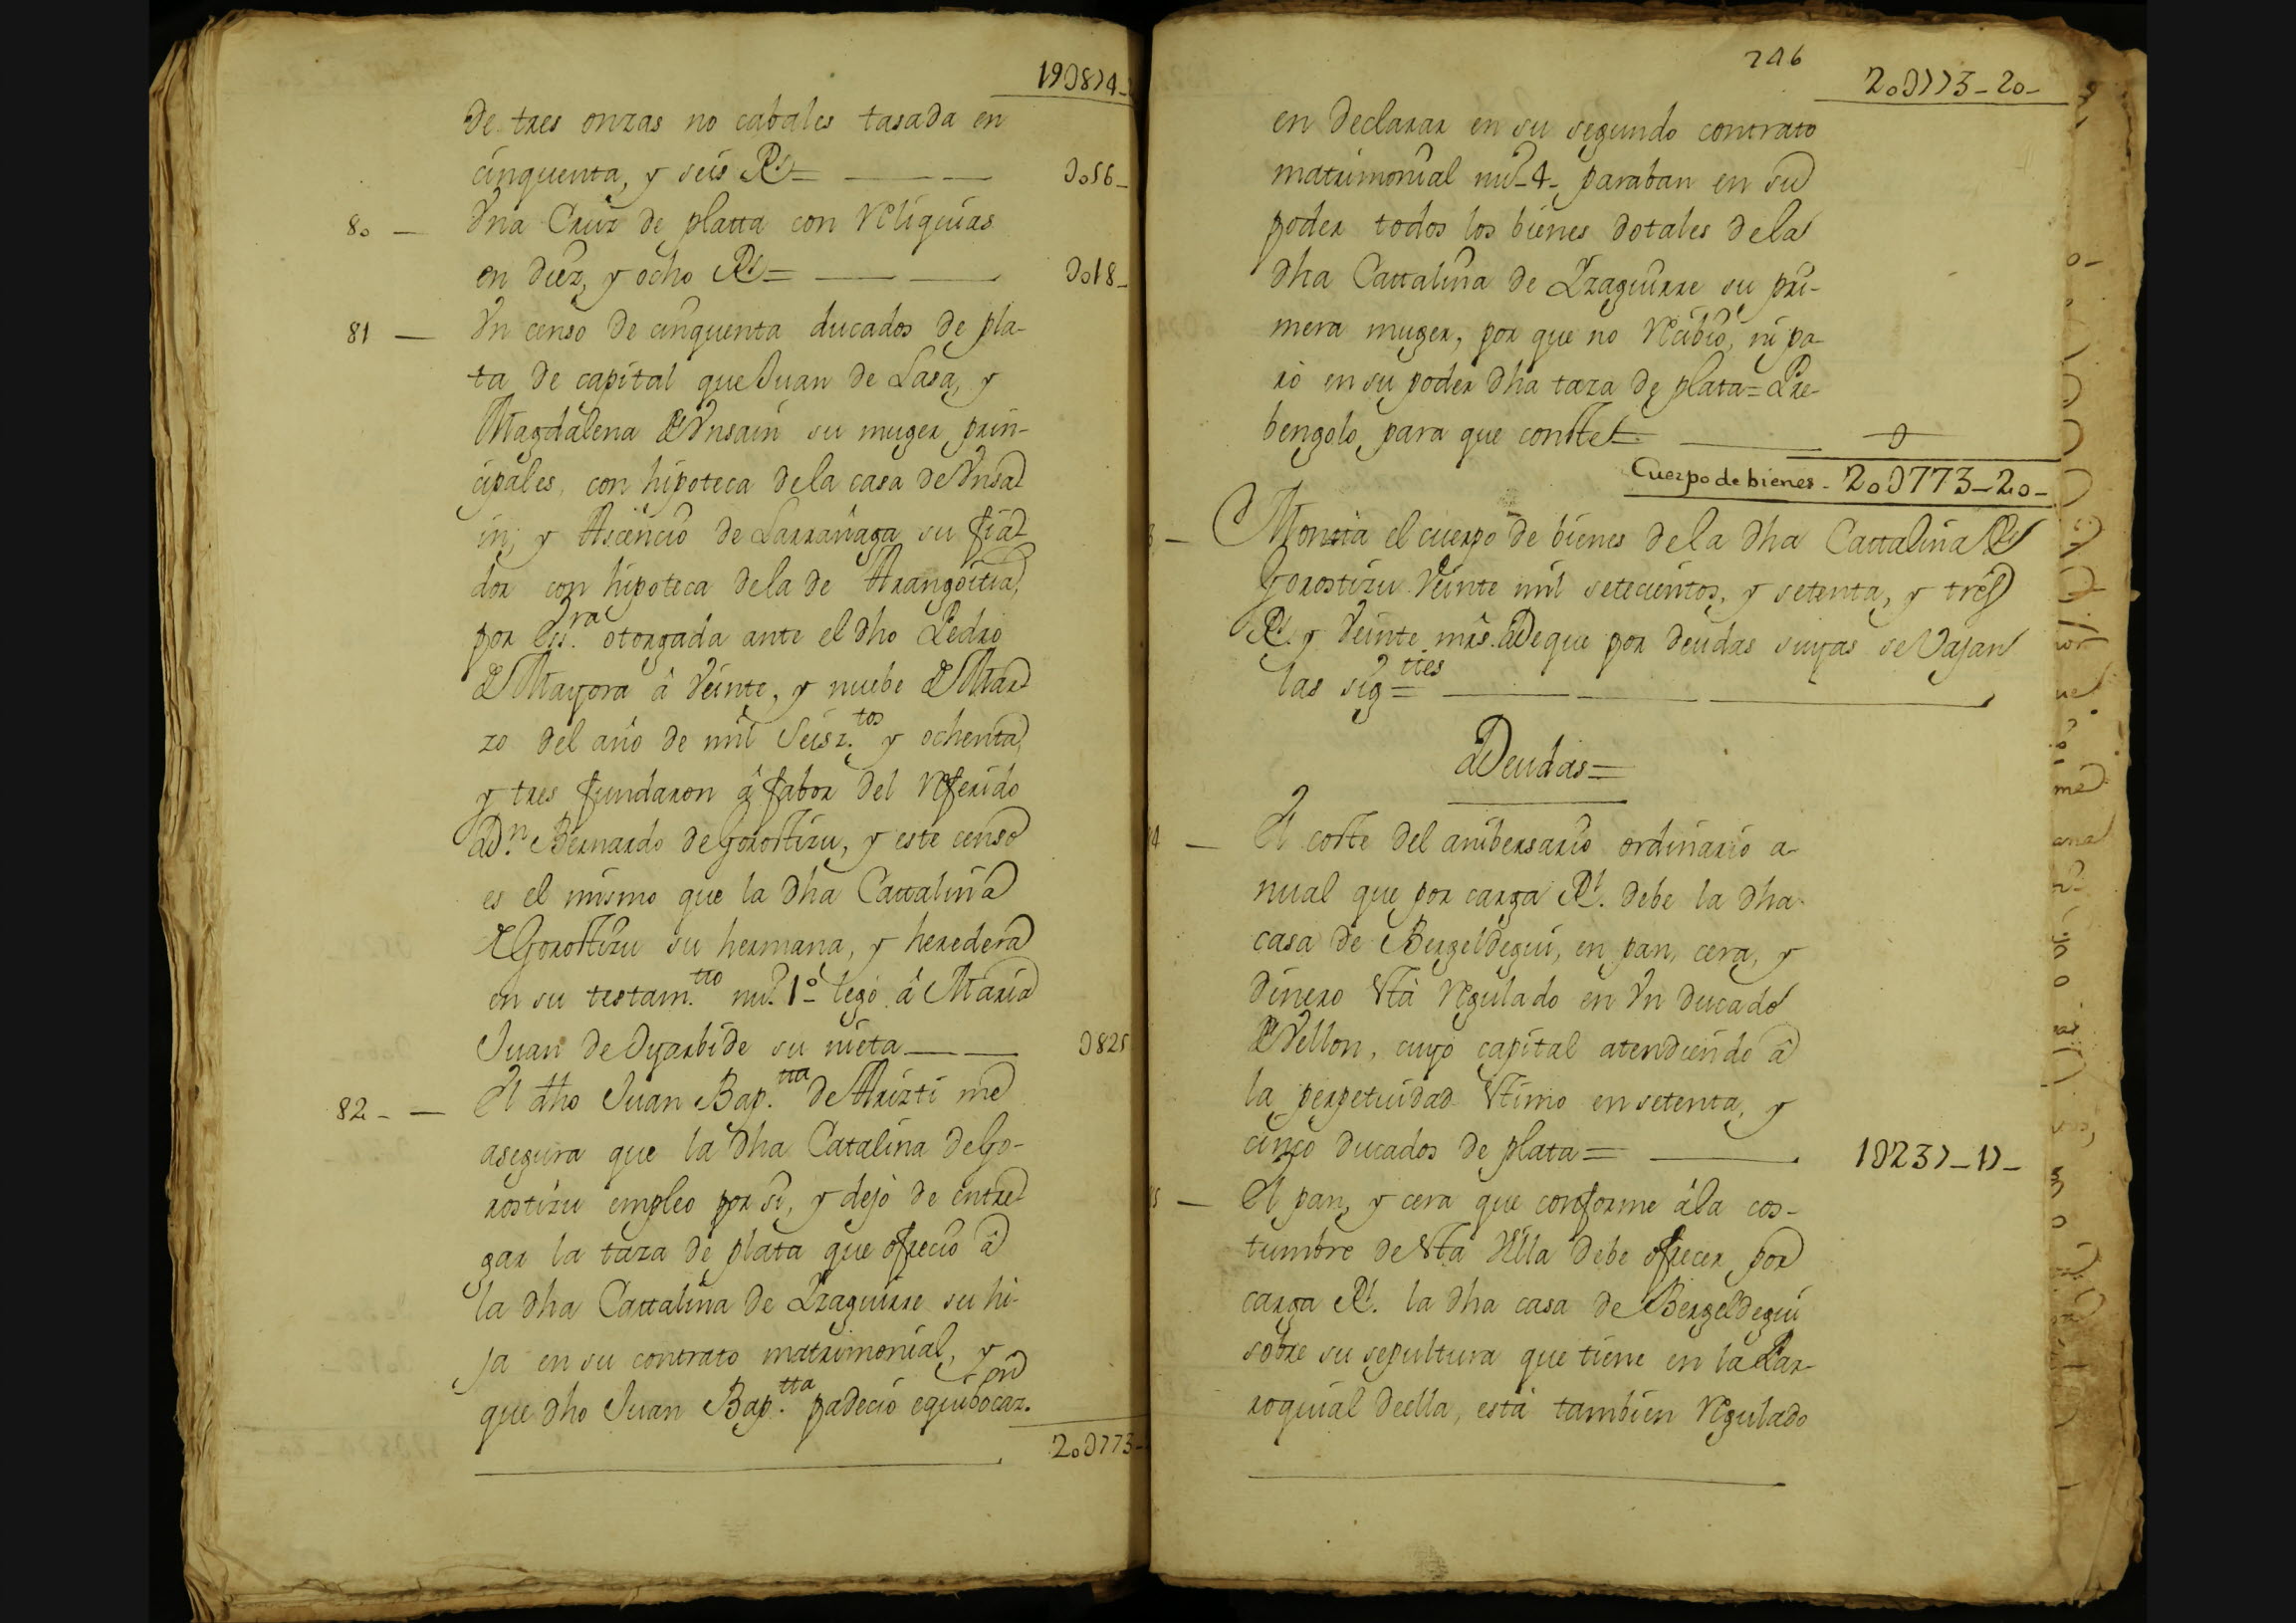 19U874-
de tres onzas no cabales tasada en
cinquenta, y seis Rs= U056-
80 - Una Cruz de platta con Reliquias
en diez, y ocho Rs= U018-
81 - Un censo de cinquenta ducados de pla-
ta de capital que Juan de Lasa, y
Magdalena de Unsain su muger prin-
cipales, con hipoteca dela casa de Unsa-
in, y Ascencio de Larrañaga su fia-
dor con hipoteca dela de Arangoitia,
por Esra. otorgada ante el dho Pedro
de Mayora â Veinte, y nuebe de Mar-
zo del año de mil Seisz.tos y ochenta,
y tres fundaron â fabor del Referido
Dn. Bernardo de Gorostizu, y este censo
es el mismo que la dha Cattalina
de Gorostizu su hermana, y heredera
en su testam.tto nu. 1º legó â Maria
Juan de Oyarbide su nieta U825
82 - El dho Juan Bap.tta de Arizti me
asegura que la dha Catalina de Go-
rostizu empleo por si, y dejó de entre-
gar la taza de plata que ofreció â
la dha Cattalina de Yzaguirre su hi-
ja en su contrato matrimonial, y
que dho Juan Bap.tta padeció equibocaz.on
20U773-
246
20U773-20-
en declarar en su segundo contrato
matrimonial nu-4- paraban en su
poder todos los bienes dotales dela
dha Cattalina de Yzaguirre su pri-
mera muger, por que no Recibió, ni pa-
ró en su poder dha taza de plata= Pre-
bengolo para que conste= U
Cuerpo de bienes - 20U773-20-
3 - Monta el cuerpo de bienes dela dha Cattalina de
Gorostizu Veinte mil setecientos, y setenta, y tres
Rs. y Veinte mrs. De que por deudas suyas se Vajan
las sigttes=
Deudas=
4 - El coste del anibersario ordinario a-
nual que por carga Rl. debe la dha
casa de Bergeldegui, en pan, cera, y
dinero Esta Regulado en Un ducado
de Vellon, cuyo capital atendiendo â
la perpetuidad Estimo en setenta, y
cinco ducados de plata= 1U237-17-
5 - El pan, y cera que conforme âla cos-
tumbre de Esta Villa debe ofrecer por
carga Rl. la dha casa de Bergeldegui
sobre su sepultura que tiene en la Par-
roquial deella, está tambien Regulado